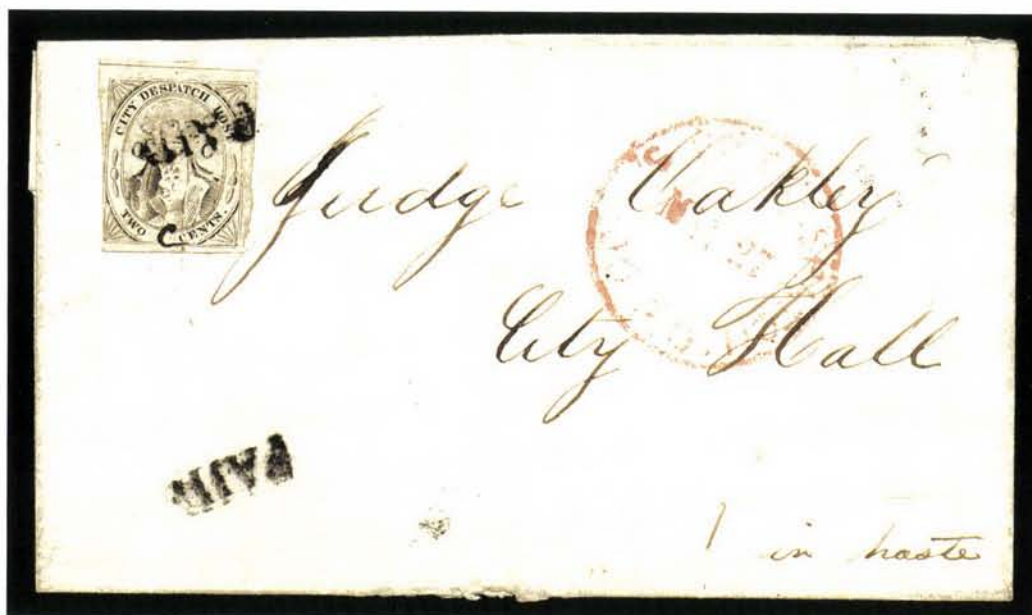 CITY DESPATCH POST
PAID
TWO CENTS.
C
Judge Oakley
City Hall
PAID
in haste